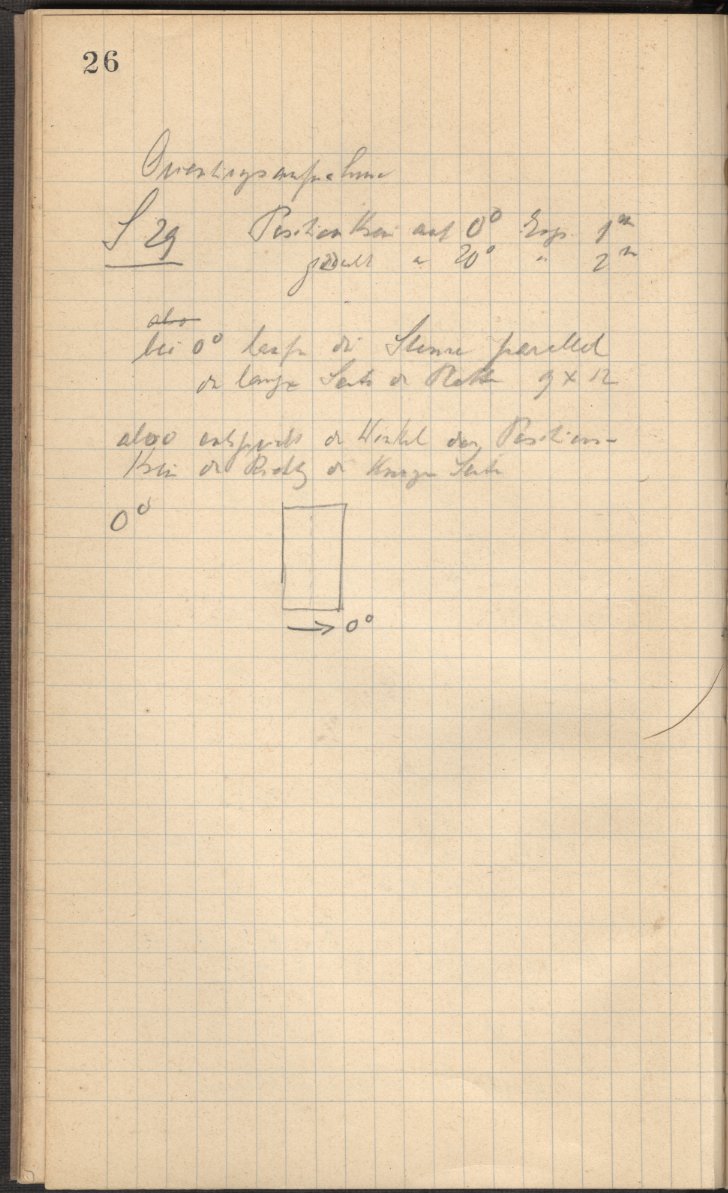 26
Orientirungsaufnahme
S 29 Positionskreis auf 0° Exp. 1ᵐ
gedreht " 20° " 2ᵐ
also
bei 0° laufen die Sterne parallel
der langen Seite der Platte 9 × 12
also entspricht der Winkel des Positions-
kreis der Richtg der kurzen Seite
0°
→ 0°